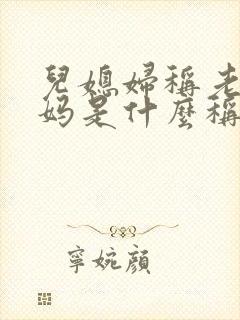 兒媳婦稱老
妈是什麼稱
寧婉顔